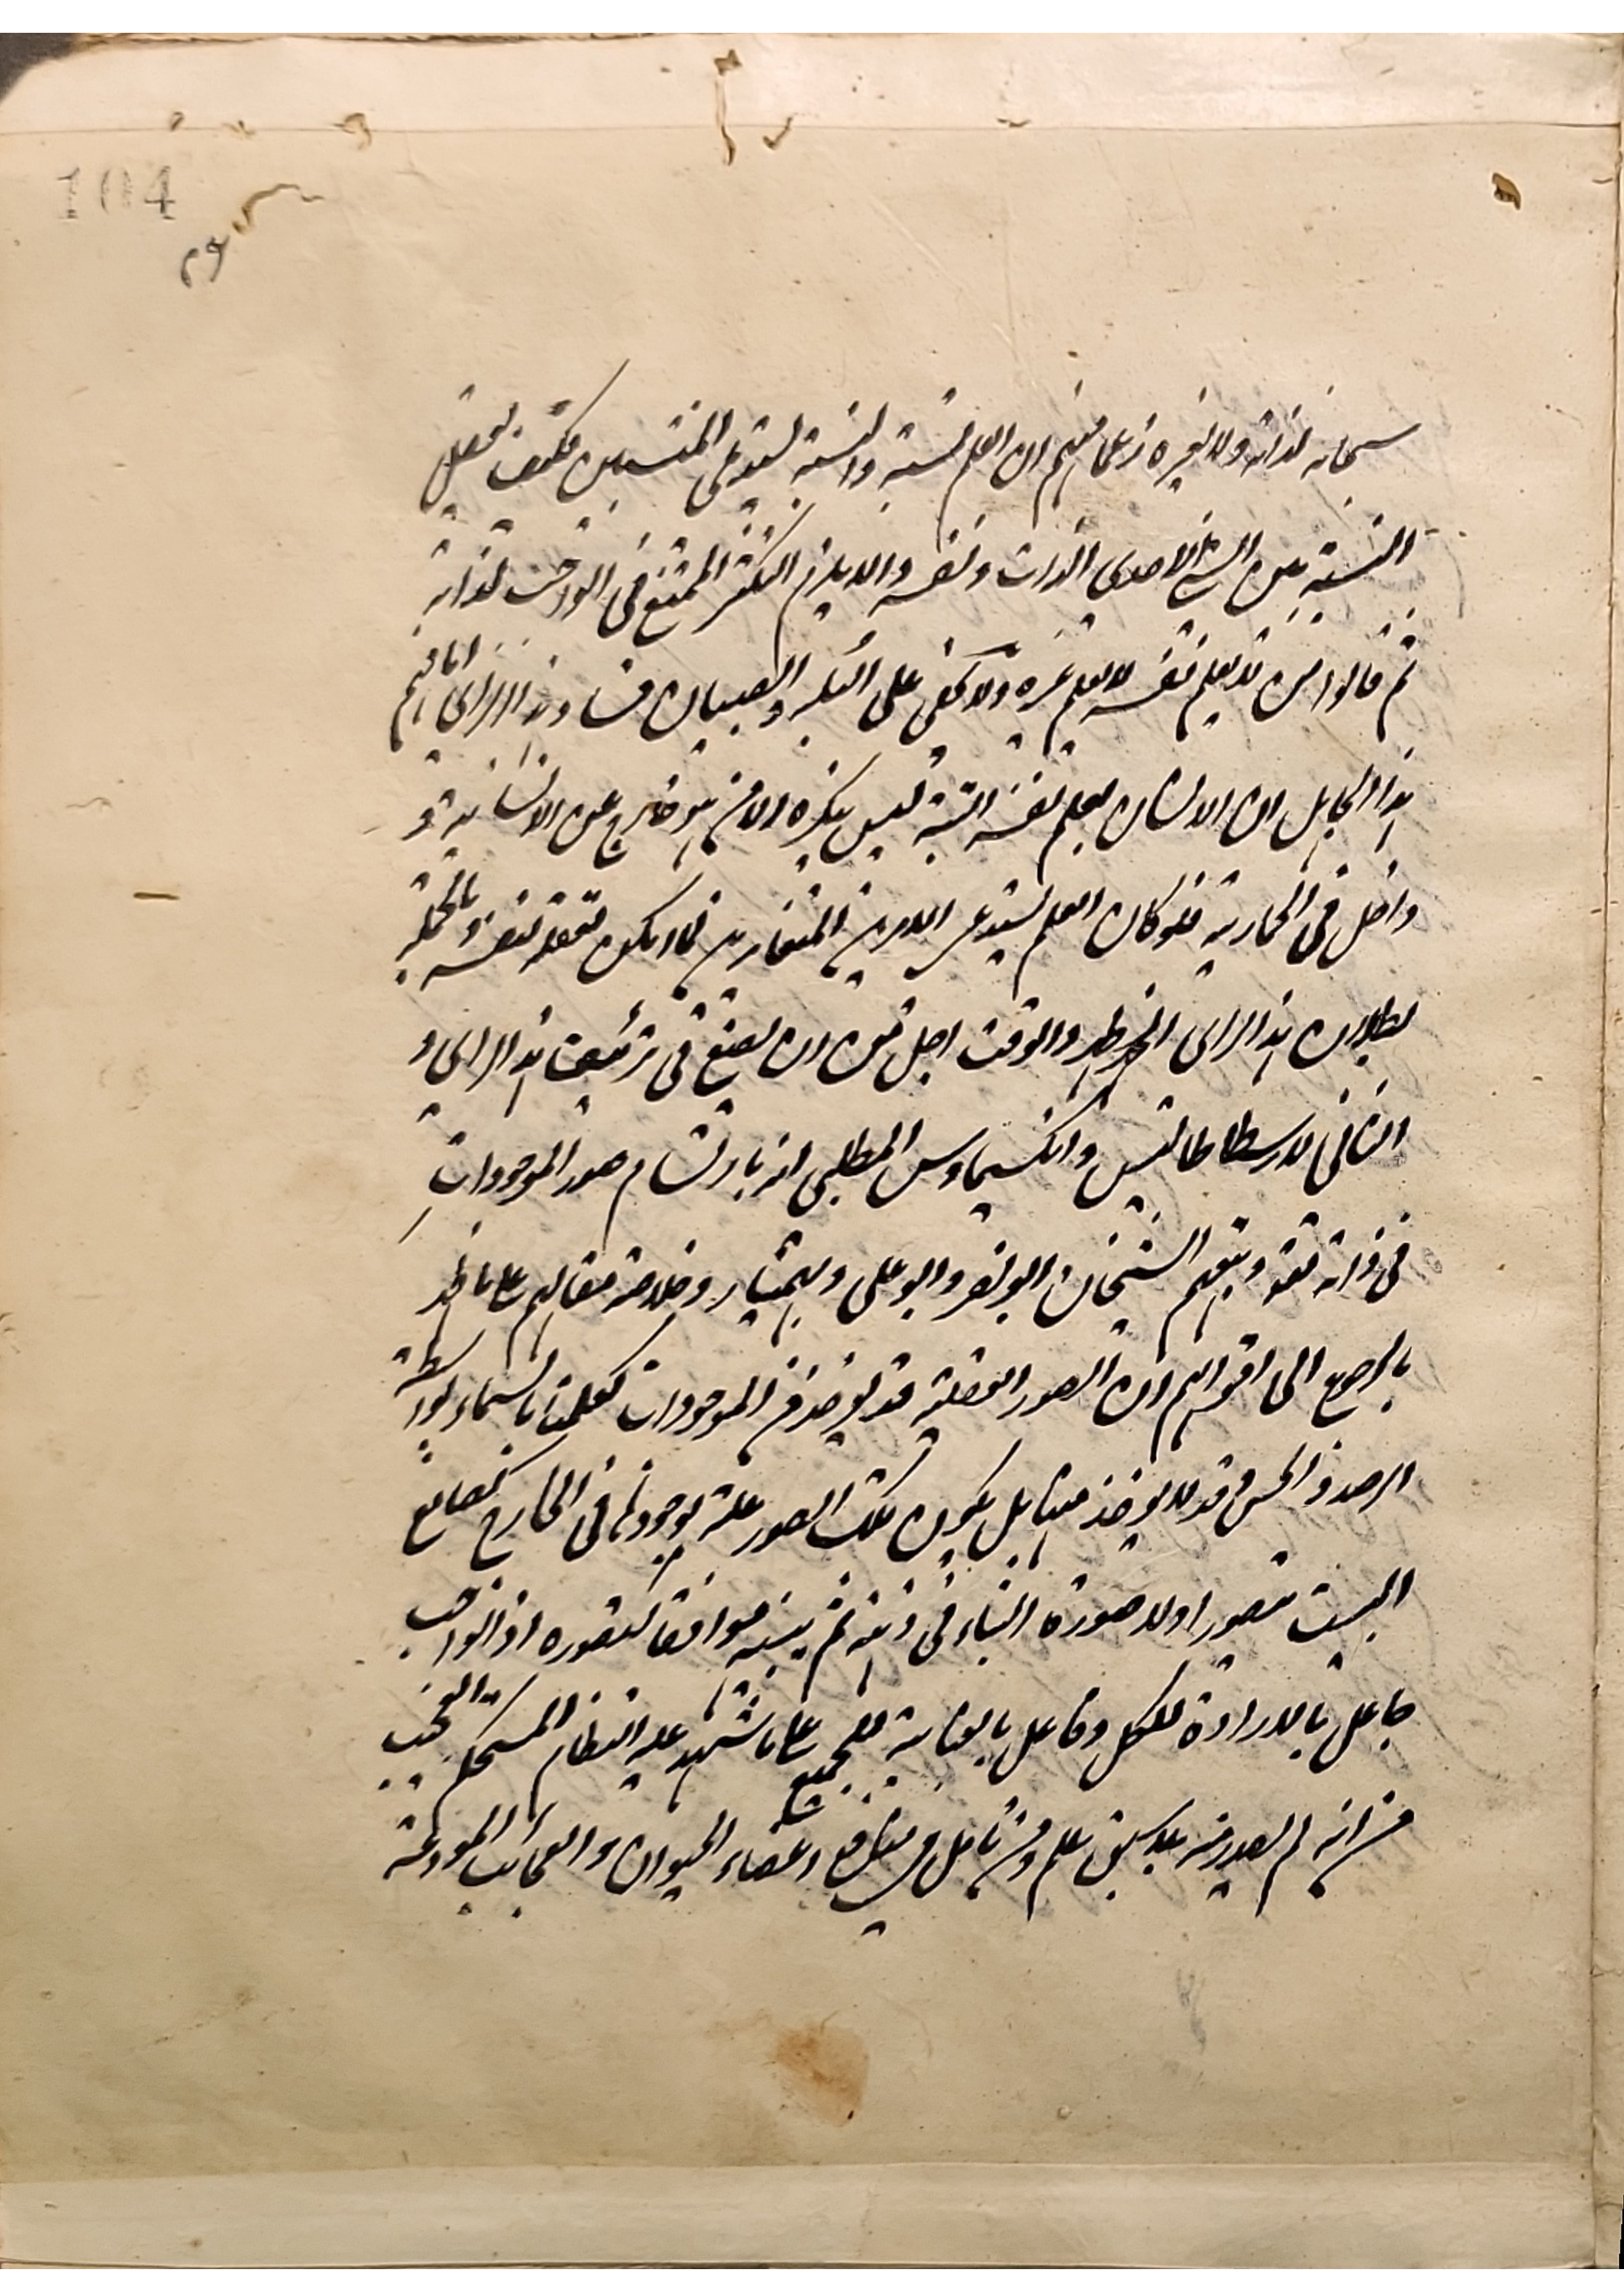 104
٤٩
سبحانه لذاته ولا لغيره زعما منهم ان العلم نسبة والنسبة تستدعي المنتسبين فكيف يعقل
النسبة بين الشئ الاحدي الذات ونفسه والا يلزم التكثر الممتنع في الواجب لذاته
ثم قالوا من لا يعلم نفسه لا يعلم غيره ولا يخفى على البله والصبيان فساد هذا الراي اما فهم
هذا الجاهل ان الانسان يعلم نفسه البتة ليس ينكره الا من هو خارج عن الانسانية و
داخل في الحمارية فلو كان العلم يستدعي الامرين المتغايرين فما يكون تعقله لنفسه وبالجملة
بطلان هذا الراي اظهر والوقت اجل من ان يضيع في تزئيف هذا الراي و
الثاني لارسطاطاليس وانكسيماوس الملطي انه بارتسام صور الموجودات
في ذاته تعه وتبعهم الشيخان ابو نصر وابو علي وبهمنيار وخلاصة مقالهم على ما يظهر
بالرجوع الى اقوالهم ان الصور العقلية قد يوخذ من الموجودات كعلمنا بالسماء بواسطة
الرصد والحس وقد لا يوخذ منها بل يكون تلك الصور علة لوجودها في الخارج كصانع
البيت تصور اولا صورة البناء في ذهنه ثم يبنيه موافقا لتصوره اذ الواجب
جاعل بالارادة للكل وفاعل بالعناية للجميع على ما شهد عليه النظام المستحكم العجيب
من انه لم يصدر منه بلا سبق علم ومن تامل في منافع اعضاء الحيوان والعجائب المودعة